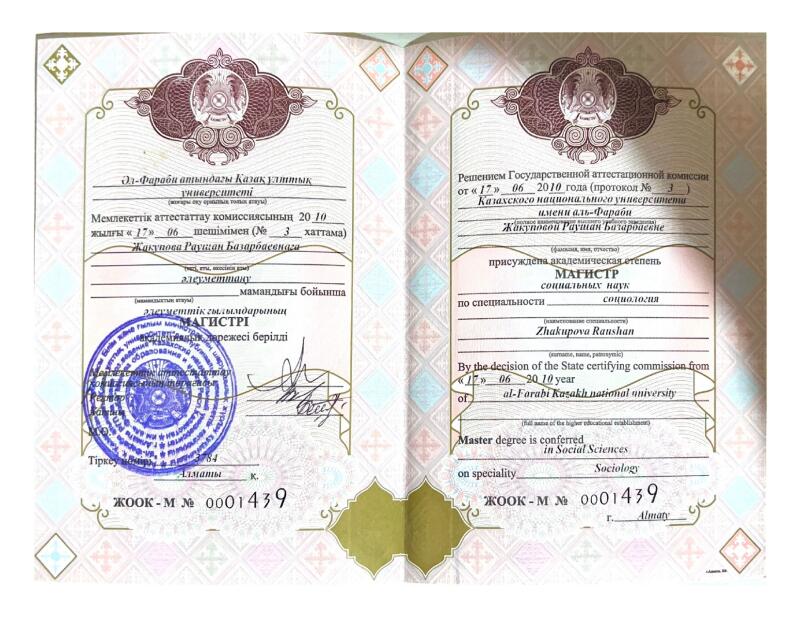 Әл-Фараби атындағы Қазақ ұлттық
университеті
(жоғары оқу орнының толық атауы)
Мемлекеттік аттестаттау комиссиясының 2010
жылғы «17» 06 шешімімен (№ 3 хаттама)
Жакупова Раушан Базарбаевнаға
(тегі, аты, әкесінің аты)
әлеуметтану
мамандығы бойынша
(мамандықтың атауы)
әлеуметтік ғылымдарының
МАГИСТРІ
академиялық дәрежесі берілді
Мемлекеттік аттестаттау
комиссиясының төрағасы
Ректор
Хатшы
М.О.
Тіркеу нөмірі 3784
Алматы қ.
ЖООК - М № 0001439
Решением Государственной аттестационной комиссии
от «17» 06 2010 года (протокол № 3 )
Казахского национального университета
имени аль-Фараби
(полное наименование высшего учебного заведения)
Жакуповой Раушан Базарбаевне
(фамилия, имя, отчество)
присуждена академическая степень
МАГИСТР
социальных наук
по специальности социология
(наименование специальности)
Zhakupova Raushan
(surname, name, patronymic)
By the decision of the State certifying commission from
«17» 06 2010 year
of al-Farabi Kazakh national university
(full name of the higher educational establishment)
Master degree is conferred
in Social Sciences
on speciality Sociology
ЖООК - М № 0001439
г. Almaty